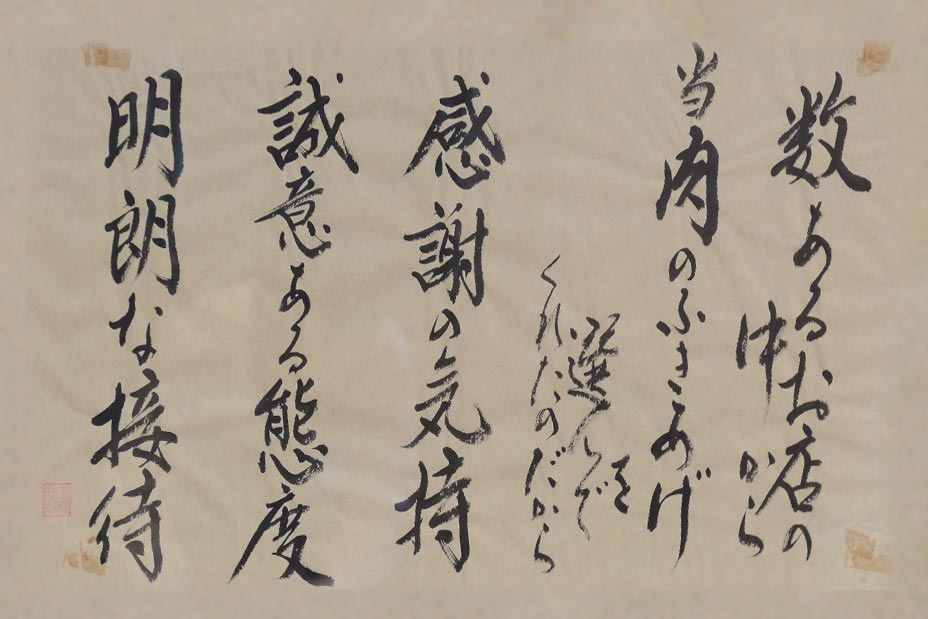 数あるお店の
中から
当肉のふきあげ
を
選んで
くれたのだから
感謝の気持
誠意ある態度
明朗な接待